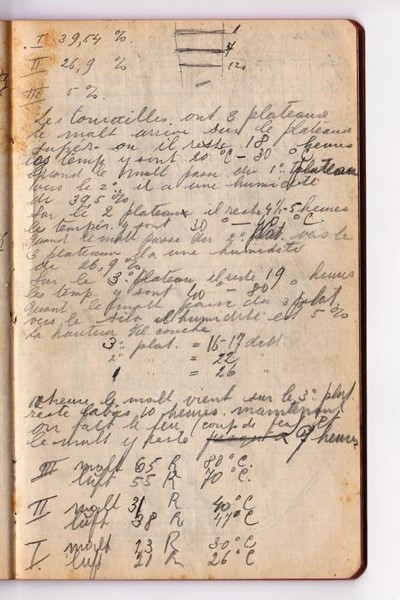 I 39,54 %.
II 26,9 %
III 5 %.
1
12
Les tourailles ont 3 plateaux
le malt arrive sur le plateau
super. ou il reste 18 heures
les temp. y sont 20 °C - 30 °
quand le malt passe du 1° plateau
vers le 2° il a une humidité
de 39,5 %
Sur le 2 plateaux il reste 4½-5 heures
les tempér. y sont 30 ° - 40 °C
Quand le malt passe du 2° plat. vers le
3 plateau il a une humidité
de 26,9 %
Sur le 3° plateau, il reste 19 heures
les temp y sont 40 - 80 °
Quant le malt passe du 3 plat
vers le silo il humidité est 5 %
La hauteur de couche
3° plat. = 16-17 dcll.
2° = 22 "
1 = 26 "
10 heure le malt vient sur le 3° plat.
reste 10 heures. maintenant
on fait le feu (coup de feu)
le malt y reste 9 heures
III malt 65 R 80°C.
luft 55 R 70°C.
II malt 31 R 40°C
luft 38 R 47°C
I. malt 23 R 30°C
luft 21 R 26°C